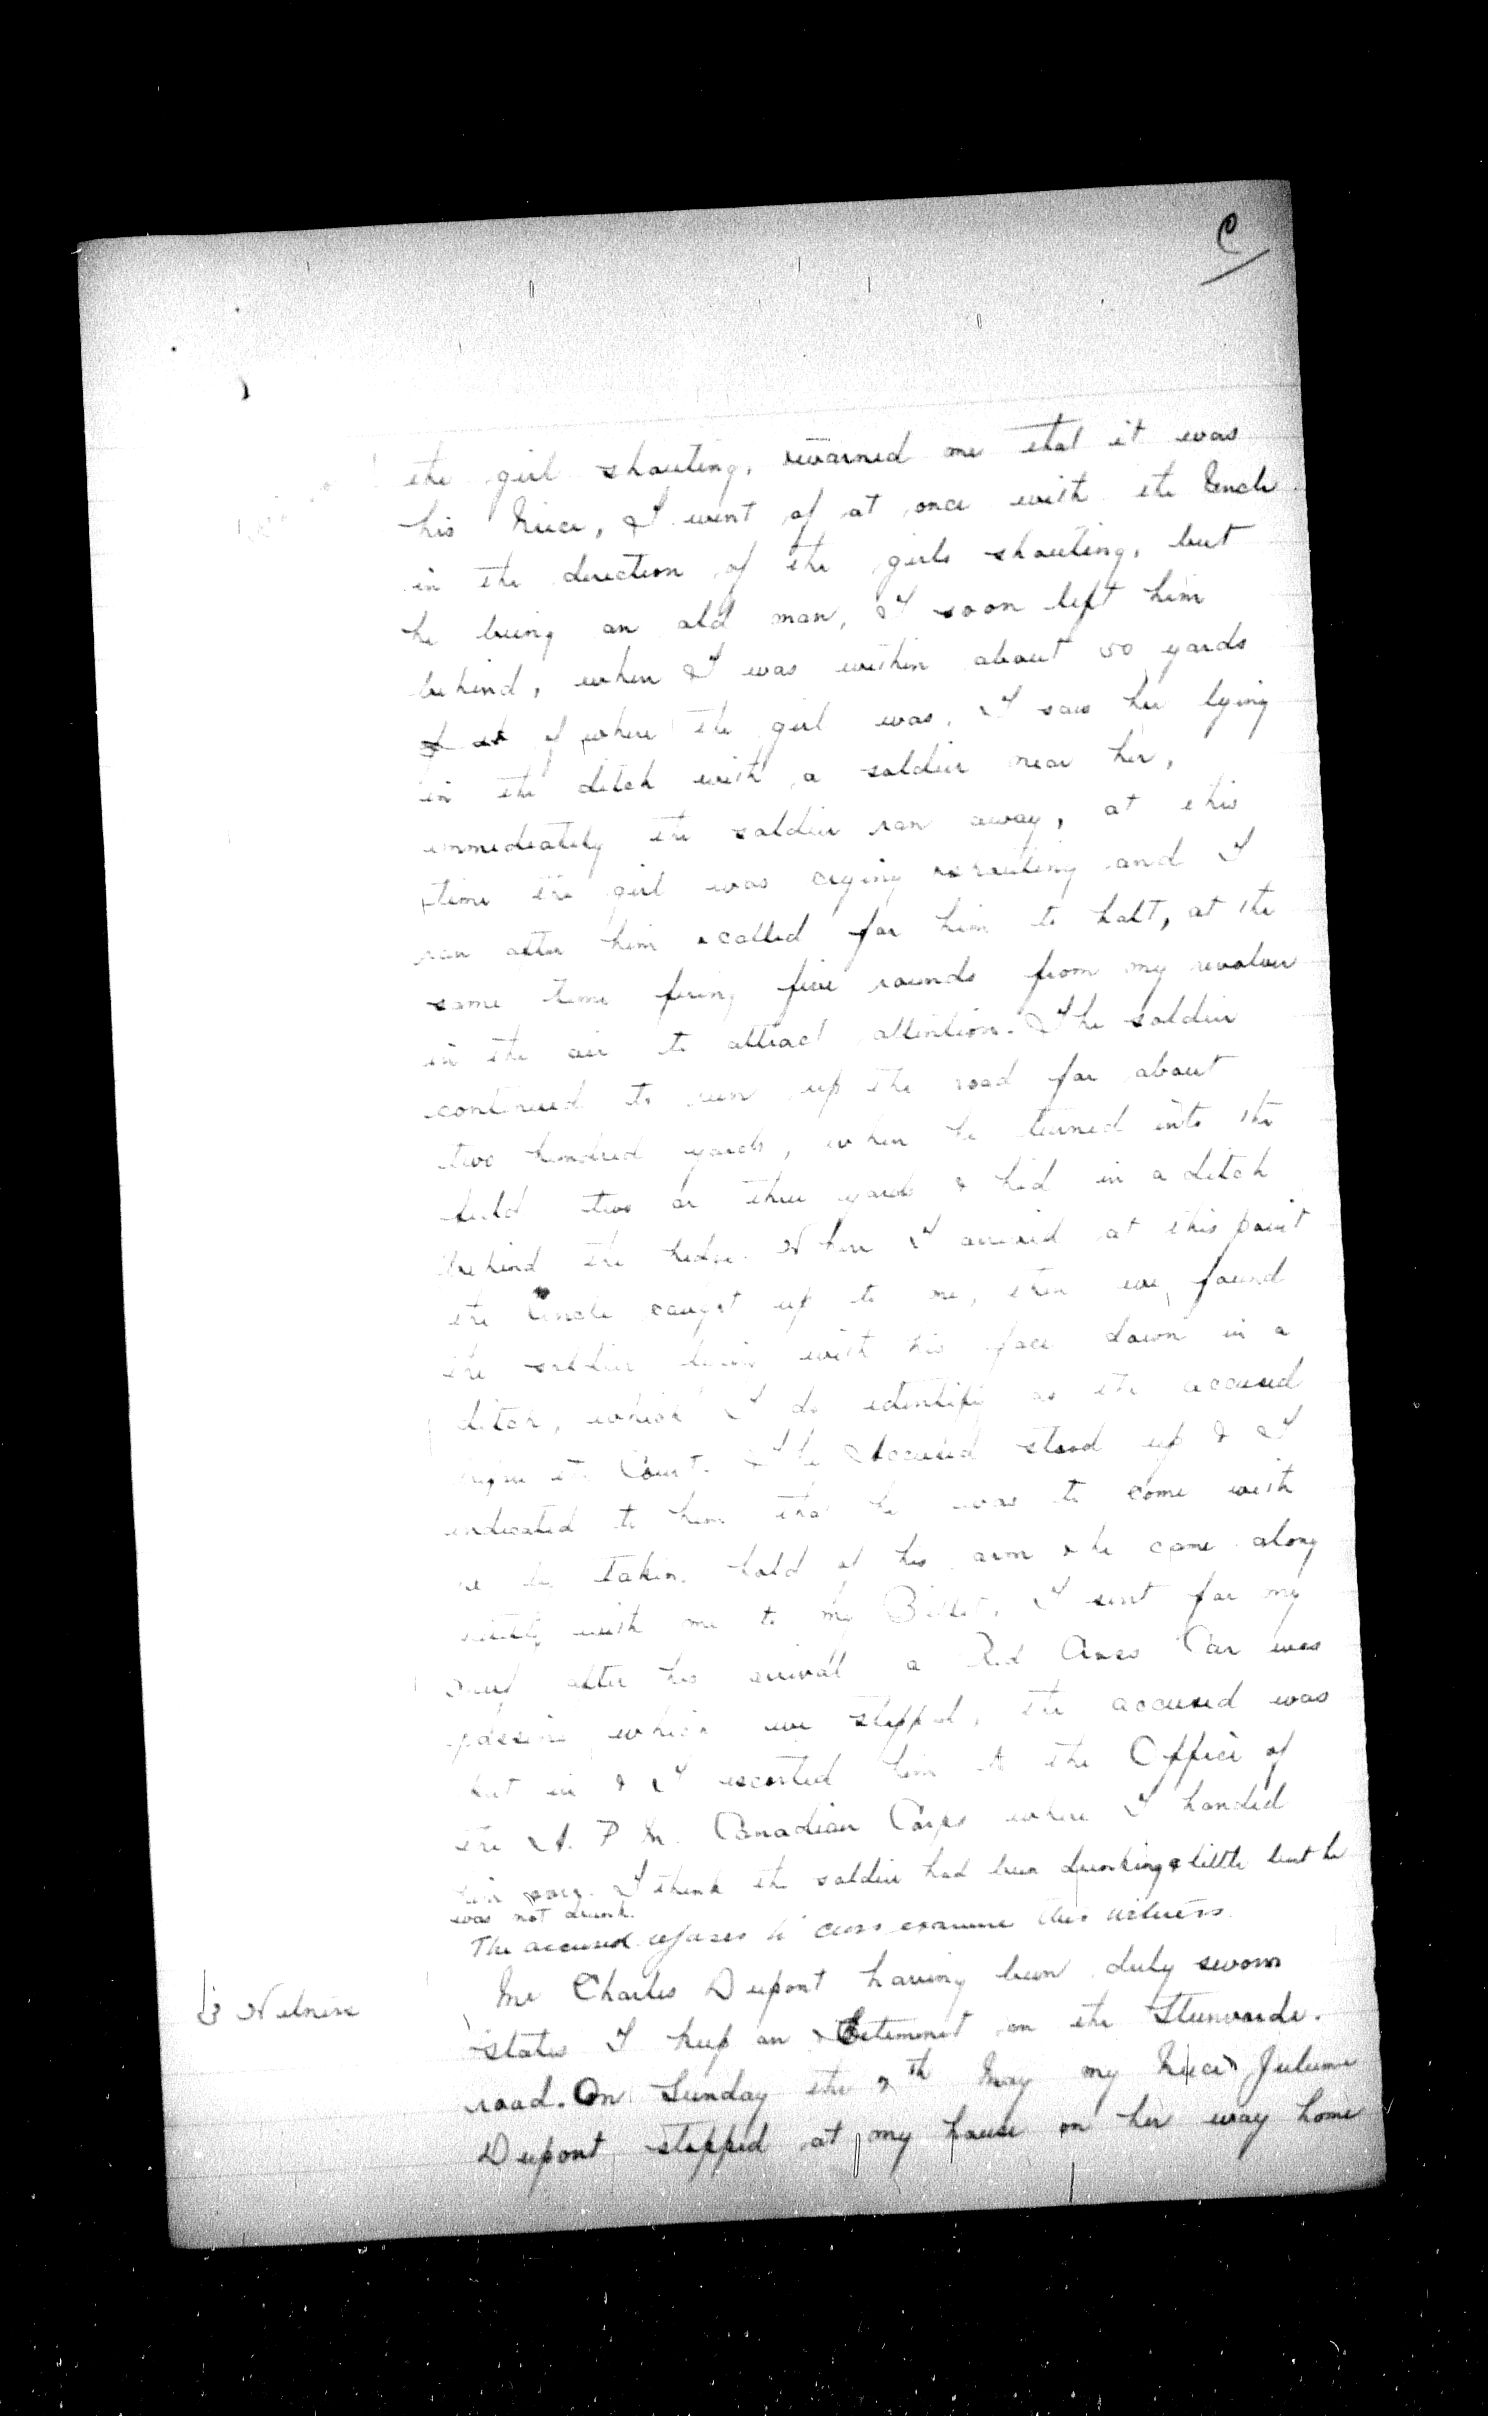 C
the girl shouting, warned me that it was
his Niece, I went of at once with the Uncle
in the direction of the girls shouting, but
he being an old man, I soon left him
behind, when I was within about 50 yards
of where the girl was, I saw her lying
in the ditch with a soldier near her,
immediately the soldier ran away, at this
time the girl was crying and I
ran after him & called for him to halt, at the
same time firing five rounds from my revolver
in the air to attract attention. The soldier
continued to run up the road for about
two hundred yards, when he turned into the
field two or three yards & hid in a ditch
behind the hedge. When I arrived at this point
the Uncle caught up to me, then we found
the soldier lying with his face down in a
ditch, which I do identify as the accused
before the Court. The Accused stood up & I
indicated to him that he was to come with
me by taking hold of his arm & he came along
with me to my Billet. I sent for my
after his arrival a Red Cross Car was
passing which we stopped, the accused was
put in & I escorted him to the Office of
the A. P. M. Canadian Corps where I handed
him over. I think the soldier had been drinking a little but he
was not drunk.
The accused refuses to cross examine this witness.
3 Witness
Mr Charles Dupont having been duly sworn
states I keep an Esteminet on the Steenvorde.
road. On Sunday the 7th May my Niece
Dupont stopped at my house on her way home